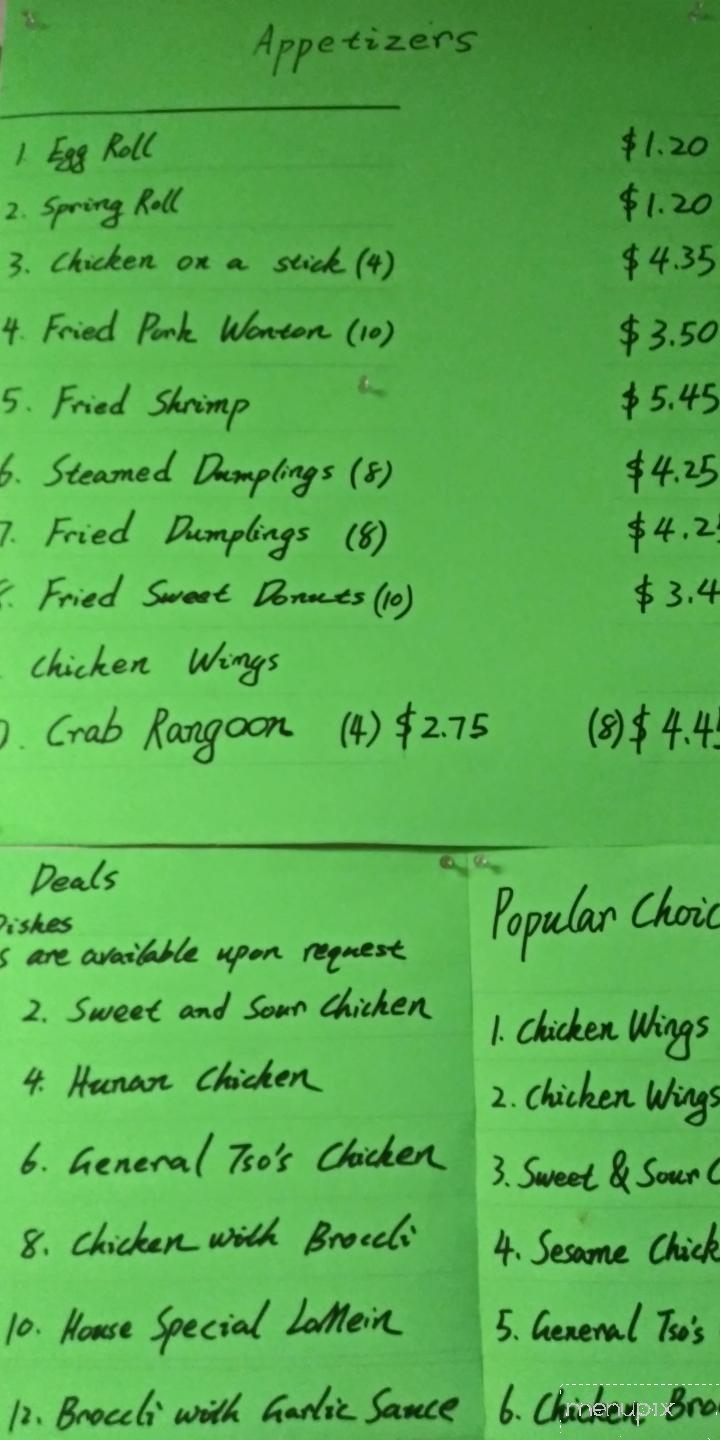 Appetizers
1 Egg Roll $1.20
2. Spring Roll $1.20
3. Chicken on a stick (4) $4.35
4. Fried Pork Wonton (10) $3.50
5. Fried Shrimp $5.45
6. Steamed Dumplings (8) $4.25
7. Fried Dumplings (8) $4.2
Fried Sweet Donuts (10) $3.4
Chicken Wings
Crab Rangoon (4) $2.75 (8) $4.4
Deals
Dishes
are available upon request
2. Sweet and Sour Chicken
4. Hunan Chicken
6. General Tso's Chicken
8. Chicken with Broccli
10. House Special LoMein
12. Broccli with Garlic Sauce
Popular Choic
1. Chicken Wings
2. Chicken Wings
3. Sweet & Sour C
4. Sesame Chick
5. General Tso's
6. Chicken Bro
menupix